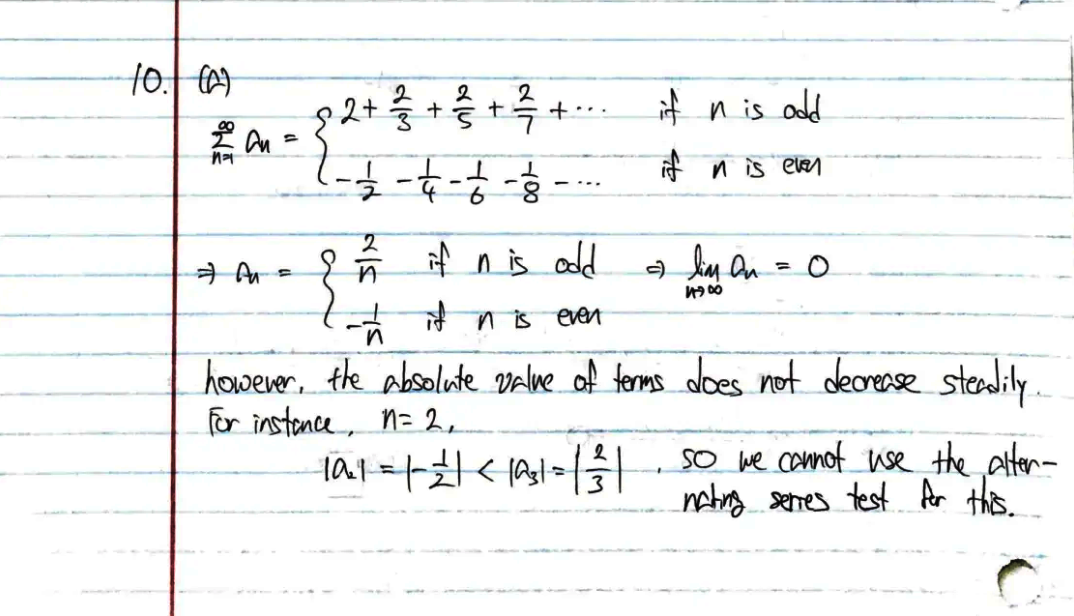 10. (a)
∞∑n=1 an = { 2 + 2/3 + 2/5 + 2/7 + ... if n is odd
-1/2 - 1/4 - 1/6 - 1/8 - ... if n is even
⇒ an = { 2/n if n is odd ⇒ lim n→∞ an = 0
-1/n if n is even
however, the absolute value of terms does not decrease steadily.
For instance, n = 2,
|a2| = |-1/2| < |a3| = |2/3| , so we cannot use the alter-
nating series test for this.